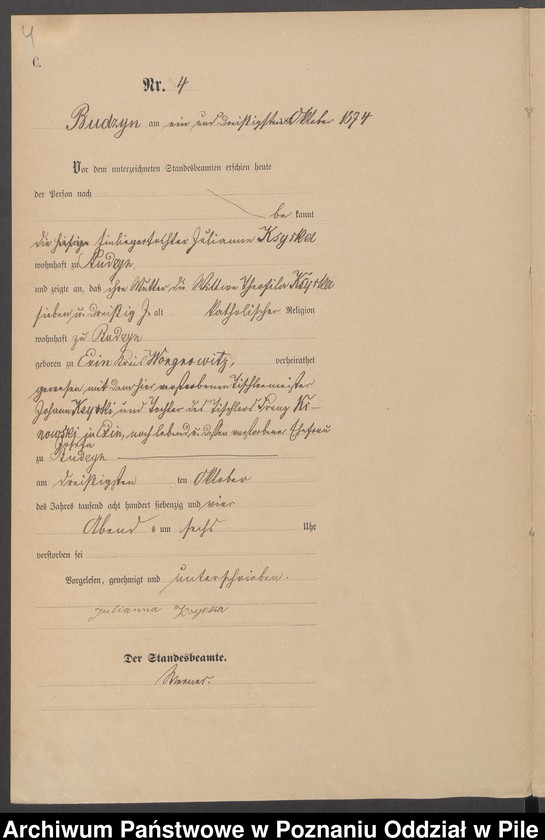 4
C.
Nr. 4
Budzyn am ein und dreißigsten Oktober 1874
Vor dem unterzeichneten Standesbeamten erschien heute
der Person nach
be kannt
die hiesige Einliegertochter Julianna Ksyska
wohnhaft zu Budzyn
und zeigte an, daß ihre Mutter, die Wittwe Theophila Ksyska
sieben u. dreißig J. alt katholischer Religion
wohnhaft zu Budzyn
geboren zu Exin Kreis Wongrowitz, verheirathet
gewesen mit dem hier verstorbenen Tischlermeister
Johann Ksyski und Tochter des Tischlers Franz
in Exin, noch lebend u. dessen verstorbener Ehefrau
Josefa
zu Budzyn
am dreißigsten ten Oktober
des Jahres tausend acht hundert siebenzig und vier
Abend s um sechs Uhr
verstorben sei
Vorgelesen, genehmigt und unterschrieben.
Julianna Ksyska
Der Standesbeamte.
Werner.
Archiwum Państwowe w Poznaniu Oddział w Pile